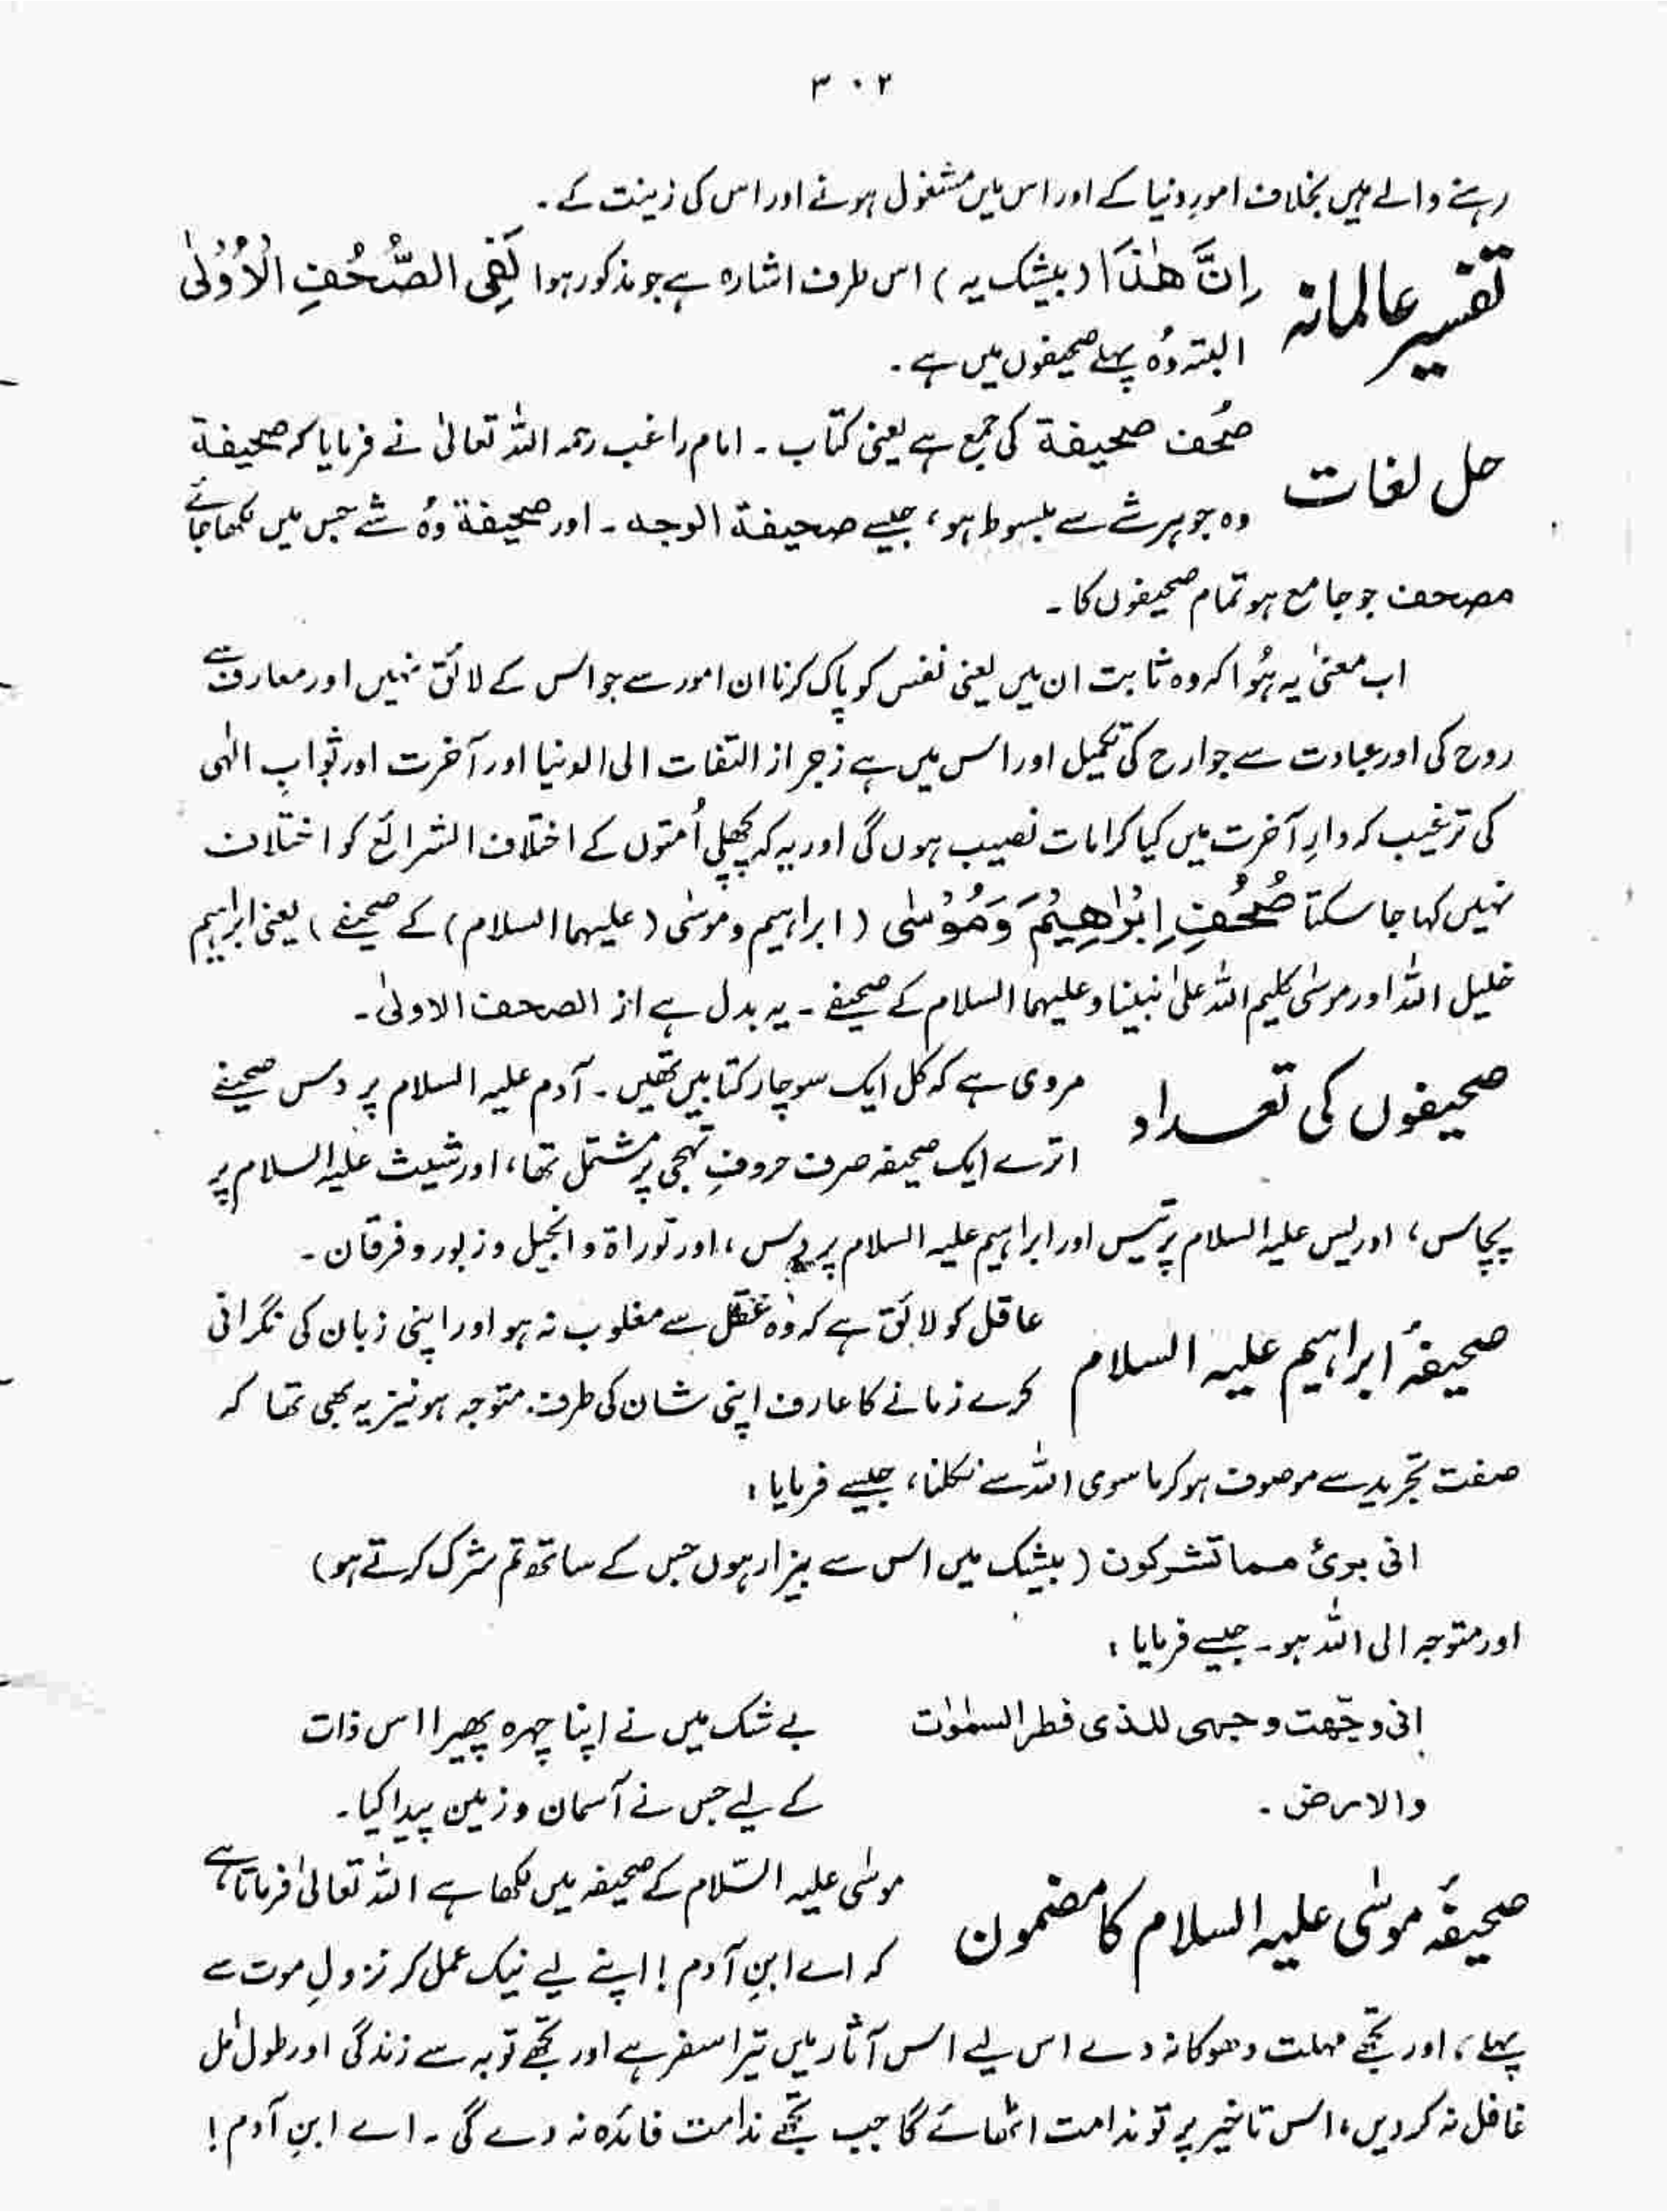 ۳۰۲
رہنے والے ہیں بخلاف امورِ دنیا کے اور اس میں مشغول ہونے اور اس کی زینت کے۔
تفسیر عالمانہ
اِنَّ هٰذَا (بیشک یہ) اس طرف اشارہ ہے جو مذکور ہوا لَفِی الصُّحُفِ الْاُوْلٰی
البتہ وُہ پہلے صحیفوں میں ہے۔
حل لغات
صُحف صحیفة کی جمع ہے یعنی کتاب۔ امام راغب رحمہ اللہ تعالیٰ نے فرمایا کہ صحیفة
وہ جو ہر شے سے مبسوط ہو، جیسے صحیفة الوجه۔ اور صحیفة وُہ شے جس میں لکھا جائے
مصحف جو جامع ہو تمام صحیفوں کا۔
اب معنیٰ یہ ہُوا کہ وہ ثابت ان میں یعنی نفس کو پاک کرنا ان امور سے جو اس کے لائق نہیں اور معارف سے
روح کی اور عبادت سے جوارح کی تکمیل اور اس میں ہے زجر از التفات الی الدنیا اور آخرت اور ثوابِ الٰہی
کی ترغیب کہ دارِ آخرت میں کیا کرامات نصیب ہوں گی اور یہ کہ پچھلی اُمتوں کے اختلاف الشرائع کو اختلاف
نہیں کہا جا سکتا صُحُفِ اِبْرٰهِیْمَ وَمُوْسٰی (ابراہیم و موسٰی (علیہما السلام) کے صحیفے) یعنی ابراہیم
خلیل اللہ اور موسٰی کلیم اللہ علیٰ نبینا و علیہما السلام کے صحیفے۔ یہ بدل ہے از الصحف الاولیٰ۔
صحیفوں کی تعداد
مروی ہے کہ کل ایک سو چار کتابیں تھیں۔ آدم علیہ السلام پر دس صحیفے
اترے ایک صحیفہ صرف حروفِ تہجی پر مشتمل تھا، اور شیث علیہ السلام پر
پچاس، ادریس علیہ السلام پر تیس اور ابراہیم علیہ السلام پر دس، اور توراة و انجیل و زبور و فرقان۔
صحیفۂ ابراہیم علیہ السلام
عاقل کو لائق ہے کہ وُہ عقل سے مغلوب نہ ہو اور اپنی زبان کی نگرانی
کرے زمانے کا عارف اپنی شان کی طرف متوجہ ہو نیز یہ بھی تھا کہ
صفت تجرید سے موصوف ہو کر ماسوی اللہ سے نکلنا، جیسے فرمایا :
انی بریٔ مما تشرکون (بیشک میں اس سے بیزار ہوں جس کے ساتھ تم شرک کرتے ہو)
اور متوجہ الی اللہ ہو۔ جیسے فرمایا :
انی وجّهت وجهی للذی فطر السمٰوٰت
والارض۔
بے شک میں نے اپنا چہرہ پھیرا اس ذات
کے لیے جس نے آسمان و زمین پیدا کیا۔
صحیفۂ موسٰی علیہ السلام کا مضمون
موسٰی علیہ السّلام کے صحیفہ میں لکھا ہے اللہ تعالیٰ فرماتا ہے
کہ اے ابنِ آدم ! اپنے لیے نیک عمل کر نزولِ موت سے
پہلے، اور تجھے مہلت دھوکا نہ دے اس لیے اس آثار میں تیرا سفر ہے اور تجھے توبہ سے زندگی اور طول امل
غافل نہ کر دیں، اس تاخیر پر تو ندامت اٹھائے گا جب تجھے ندامت فائدہ نہ دے گی۔ اے ابنِ آدم !